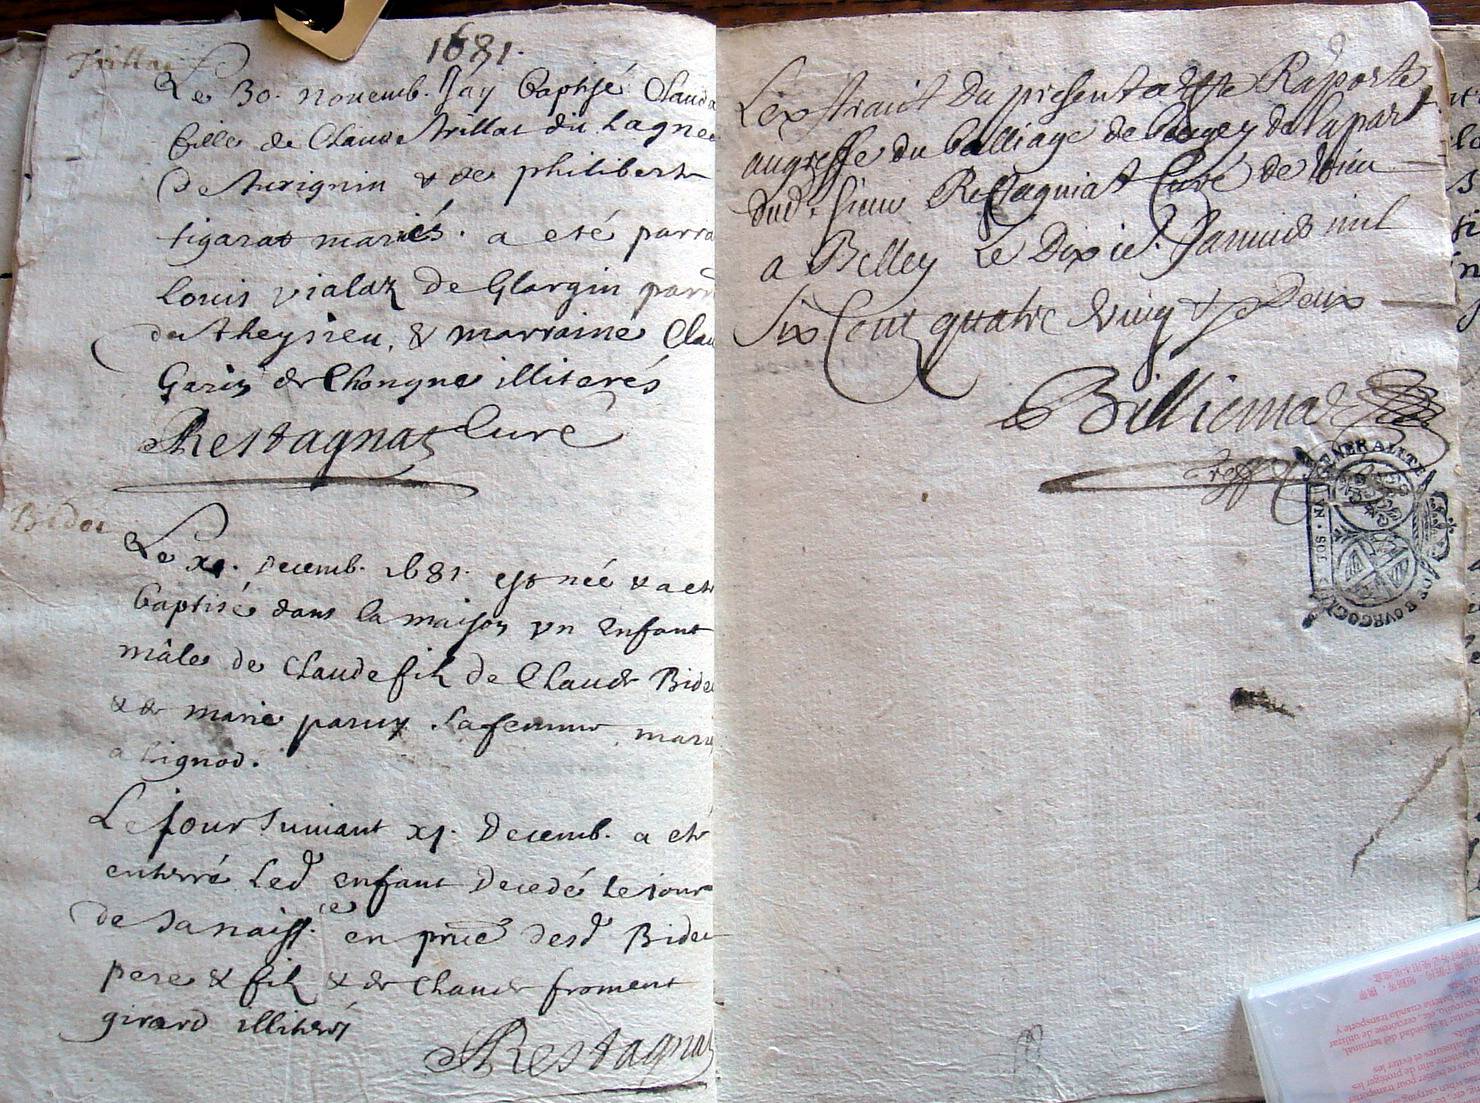 1681.
Trillat
Le 30. nouemb. J'ay baptisé Clauda
fille de Claude Trillat dit Lagne
de Thurignin & de philiberte
tigarat mariés. a eté parra
Louis vialaz de Glargin parr
du Theyrieu, & marraine Clau
Garin de Chongne illiterés
Restagnat Curé
Bider
Le x. Decemb. 1681. est née & a eté
baptisé dans la maison vn Enfant
mâle de Claude filz de Claude Bider
& de marie La femme mari
a Lignod.
Le jour suiuant xj. Decemb. a eté
enterré Led enfant Decedé le jour
de sa naiss.ce en pñce desd Bider
pere & filz & de Claude froment
girard illiterés
Restagnat
L'extrait du present acte Rapporté
au greffe du balliage de beugey de la part
dud. sieur Restagniat Curé de
a Belley Le Dixie. Januier mil
Six Cent quatre Vingt Deux
Billiema
Greff
GENERALITE
DE BOVRGOGNE
SOL